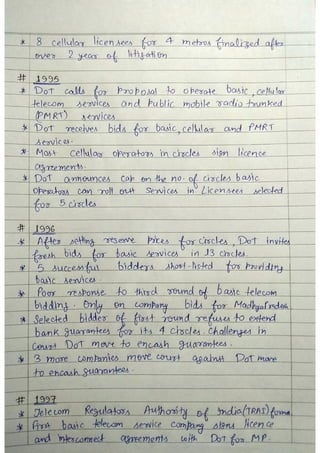 * 8 cellular licensees for 4 metros finalized after
over 2 year of litigation
# 1995
* DoT calls for Proposal to operate basic, cellular
telecom services and Public mobile radio trunked
(PMRT) services.
* DoT receives bids for basic, cellular and PMRT
services.
* Most Cellular operators in circles sign licence
agreements.
* DoT announces cap on the no. of circles basic
Operators can roll out services in Licensees selected
for 5 circles
# 1996
* After setting reserve Prices for Circles, DoT invites
fresh bids for basic services in 13 circles.
* 5 successful bidders short-listed for providing
basic services.
* Poor response to third round of basic telecom
bidding. Only on company bids for Madhya Pradesh
* Selected bidder of first round refuses to extend
bank guarantees for its 4 circles. Challenges in
Court DoT move to encash guarantees.
* 3 more companies move court against DoT move
to encash guarantees.
# 1997
* Telecom Regulators Authority of India (TRAI) forms
* First basic telecom service company signs licence
and Interconnect agreements with DoT for MP.